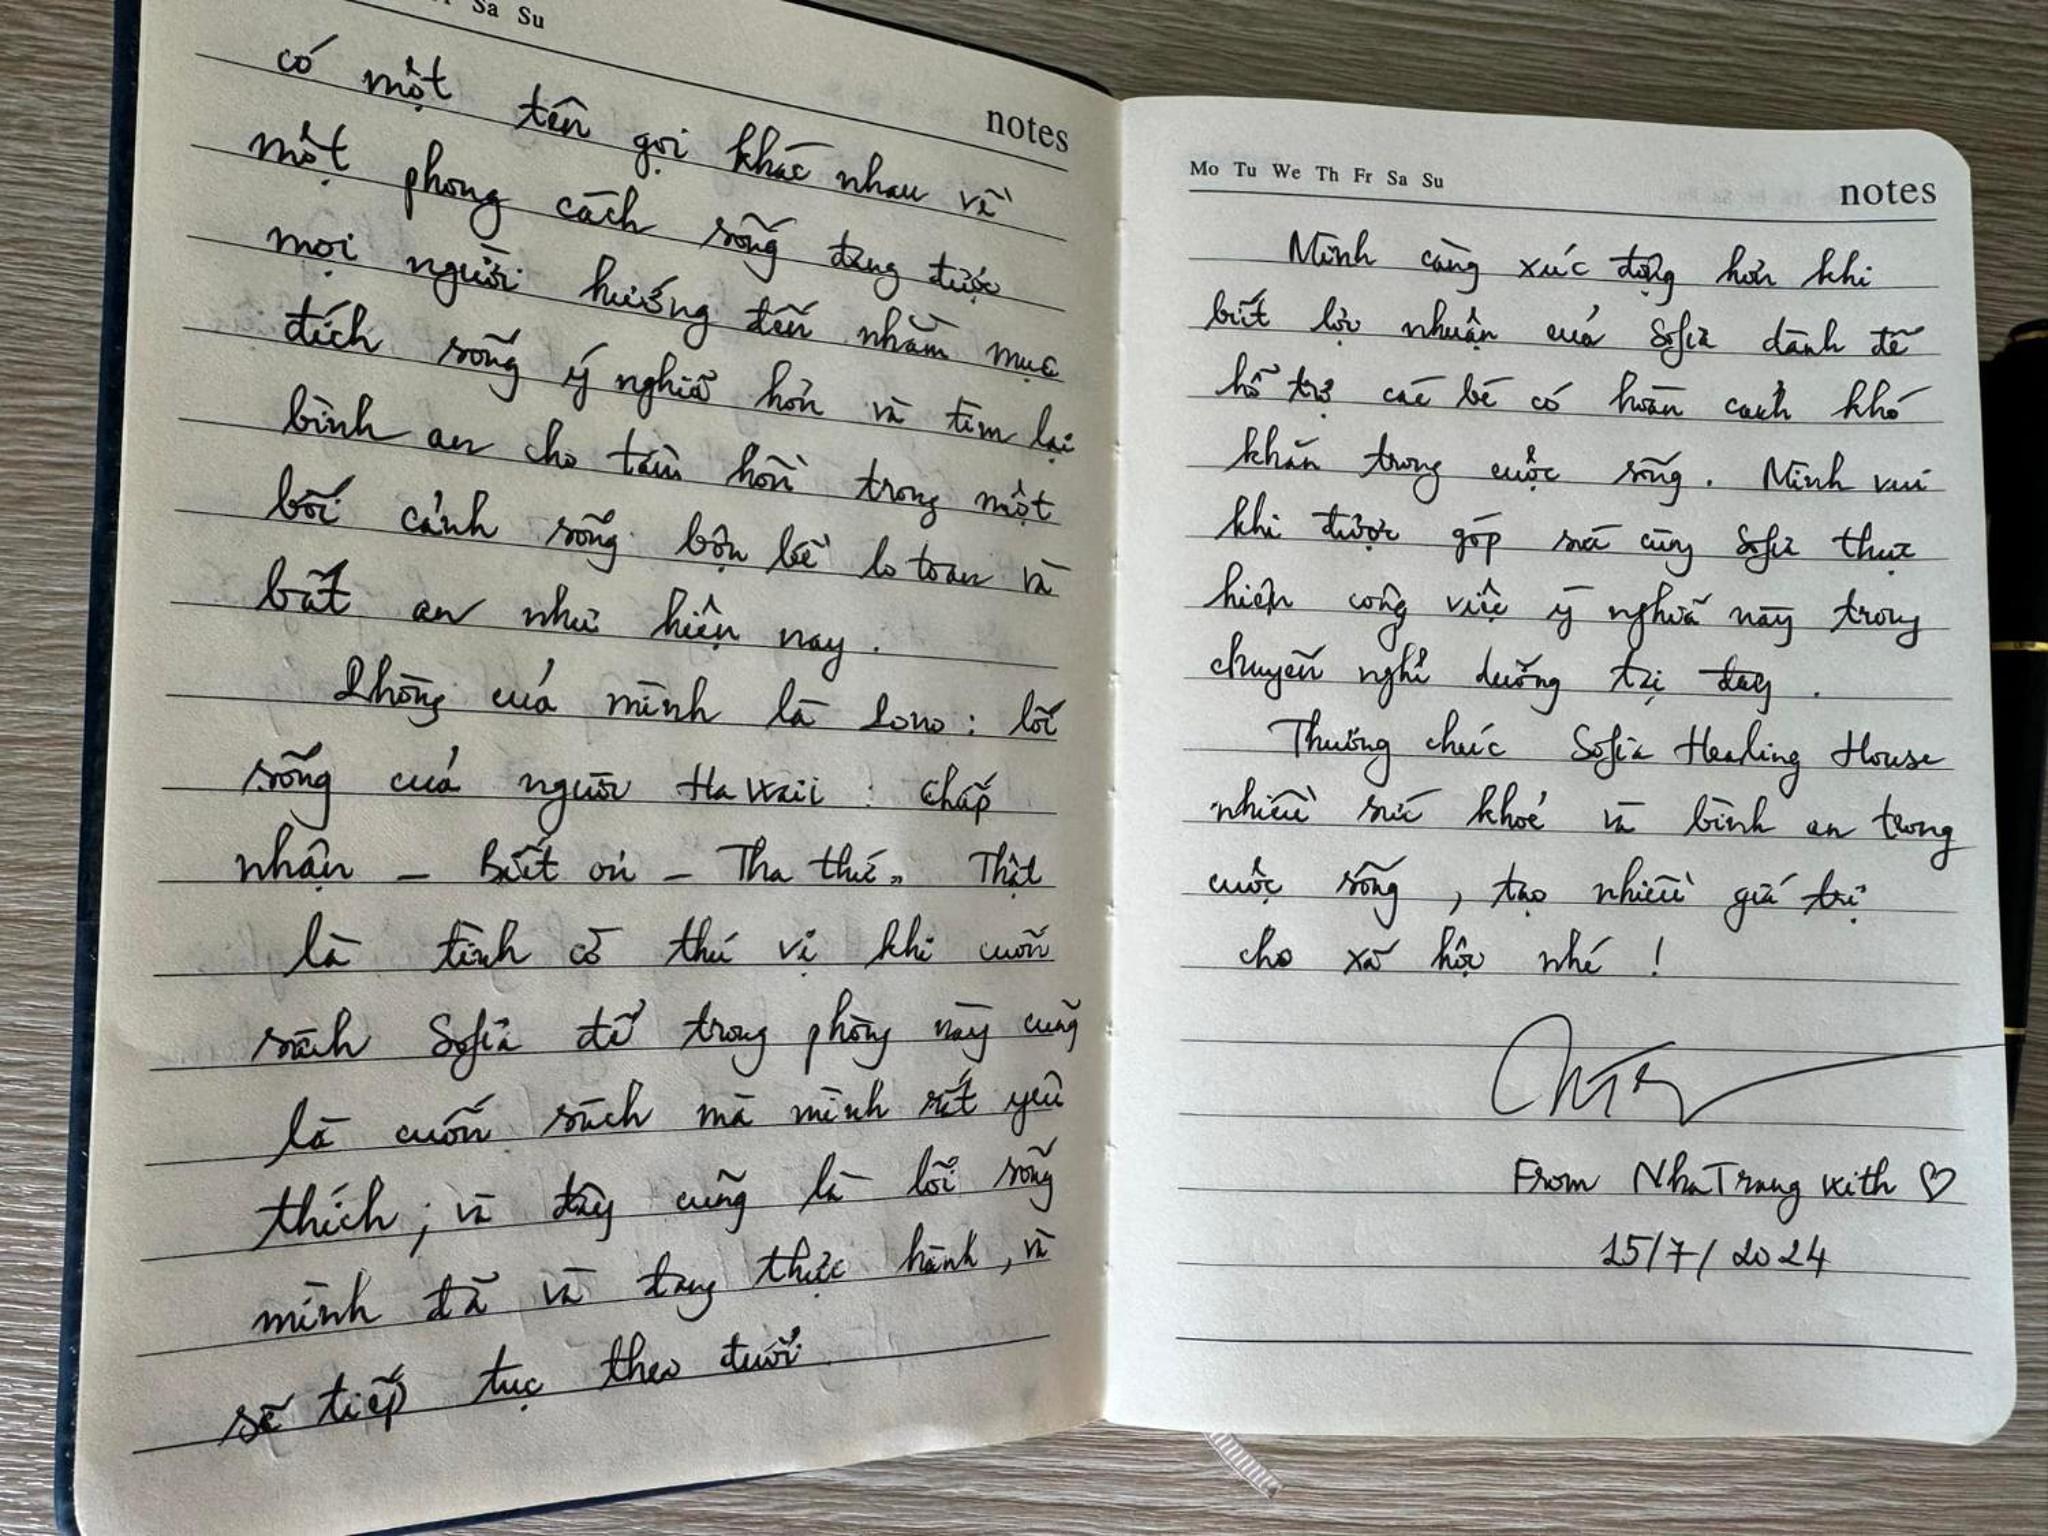 Sa Su
notes
có một tên gọi khác nhau về
một phong cách sống đang được
mọi người hướng đến nhằm mục
đích sống ý nghĩa hơn và tìm lại
bình an cho tâm hồn trong một
bối cảnh sống bộn bề lo toan và
bất an như hiện nay.
Phòng của mình là Lono: lối
sống của người Hawaii: chấp
nhận - Biết ơn - Tha thứ. Thật
là tình cờ thú vị khi cuốn
sách Sofia để trong phòng này cũng
là cuốn sách mà mình rất yêu
thích; và đây cũng là lối sống
mình đã và đang thực hành, và
sẽ tiếp tục theo đuổi
Mo Tu We Th Fr Sa Su
notes
Mình càng xúc động hơn khi
biết lợi nhuận của Sofia dành để
hỗ trợ các bé có hoàn cảnh khó
khăn trong cuộc sống. Mình vui
khi được góp sức cùng Sofia thực
hiện công việc ý nghĩa này trong
chuyến nghỉ dưỡng tại đây.
Thương chúc Sofia Healing House
nhiều sức khoẻ và bình an trong
cuộc sống, tạo nhiều giá trị
cho xã hội nhé!
From NhaTrang with ♡
15/7/2024